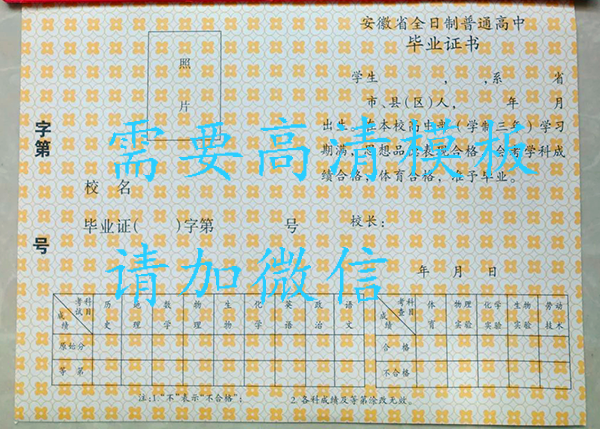 安徽省全日制普通高中
毕业证书
照
片
学生 , ,系 省
市、县(区)人, 年 月
出生。在本校高中部(学制三年)学习
期满,思想品德表现合格,会考学科成
绩合格,体育合格,准予毕业。
字第
号
校 名
毕业证( )字第 号
校长:
年 月 日
需要高清模板
请加微信
考试科目 成绩 历史 地理 数学 物理 生物 化学 英语 政治 语文
原始分
等 第
考查科目 成绩 体育 物理实验 化学实验 生物实验 劳动技术
合 格
不合格
注:1."不"表示"不合格"; 2.各科成绩及等第涂改无效。